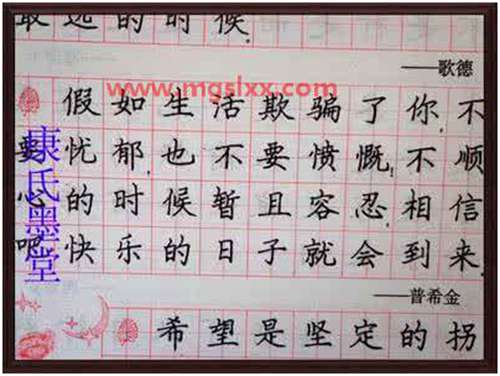 远的时候.
——歌德
www.mgslxx.com
假如生活欺骗了你,不
要忧郁,也不要愤慨.不顺
心的时候暂且容忍,相信
吧,快乐的日子就会到来.
——普希金
希望是坚定的拐
康氏墨堂